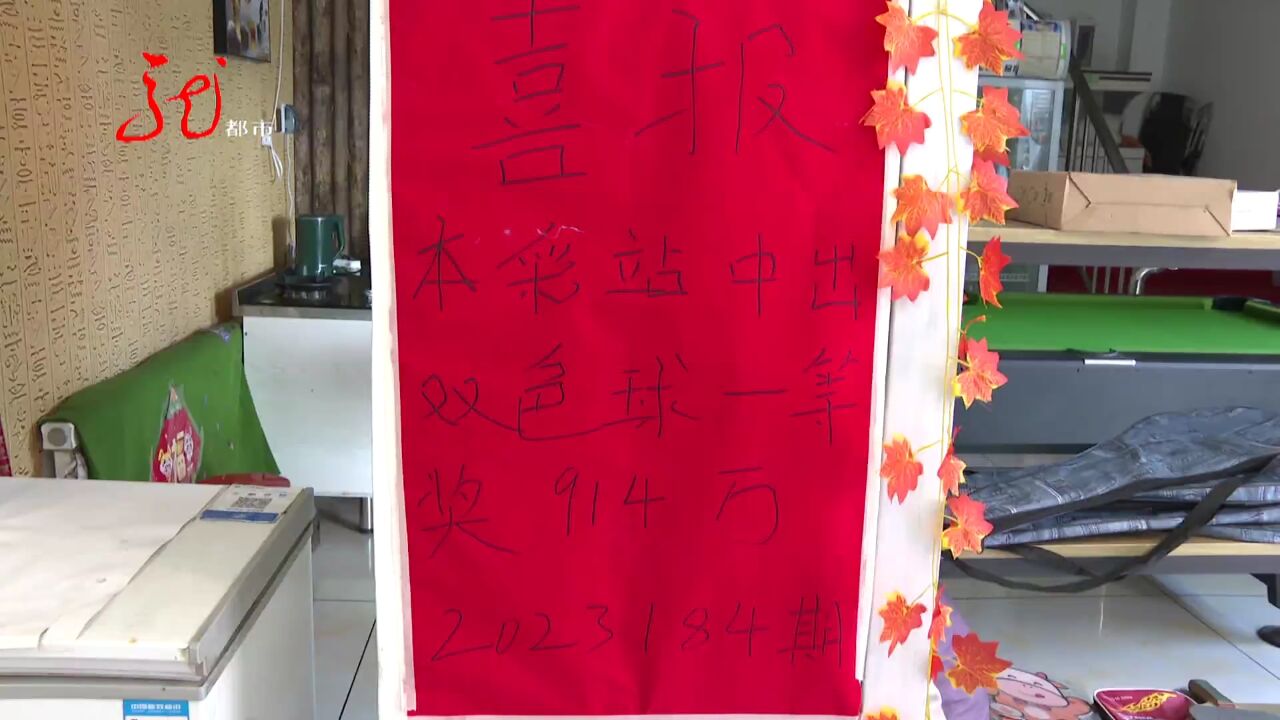 喜报
本彩站中出
双色球一等
奖914万
2023184期
都市